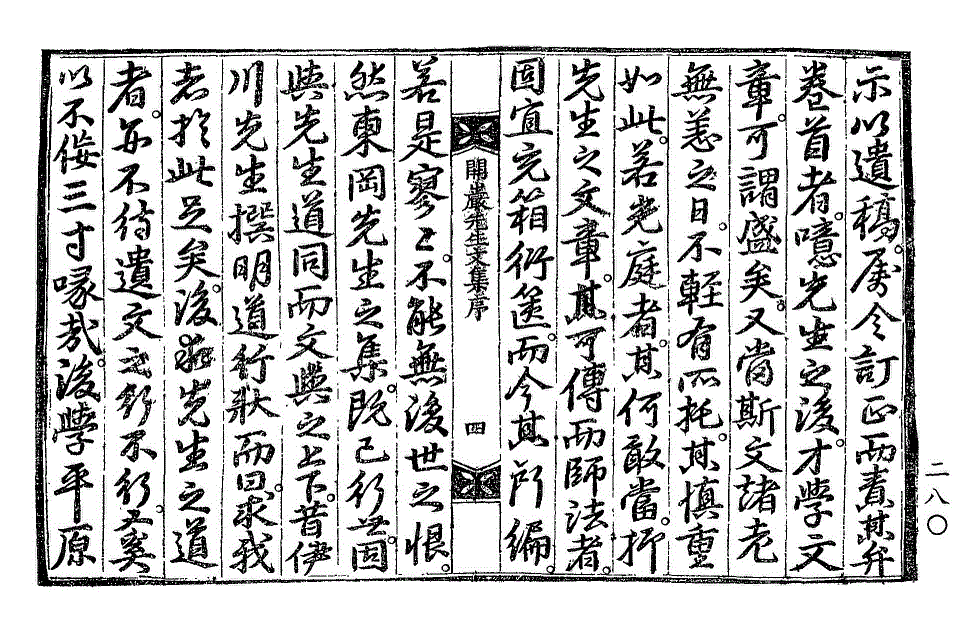 示以遺稿。属令訂正而責其弁
卷首者。噫先生之後。才學文
章。可謂盛矣。又當斯文諸老
無恙之日。不輕有所托。其慎重
如此。若尭庭者。其何敢當。抑
先生之文章。其可傳而師法者。
固宜充箱衍篋。而今其所編
開巖先生文集序
四
若是寥〻。不能無後世之恨。
然東岡先生之集。既已行世。固
與先生道同而文與之上下。昔伊
川先生撰明道行狀而曰。求我
者於此足矣。後之求先生之道
者。亦不待遺文之行不行。又奚
以不佞三寸喙爲哉。後學平原
二八〇